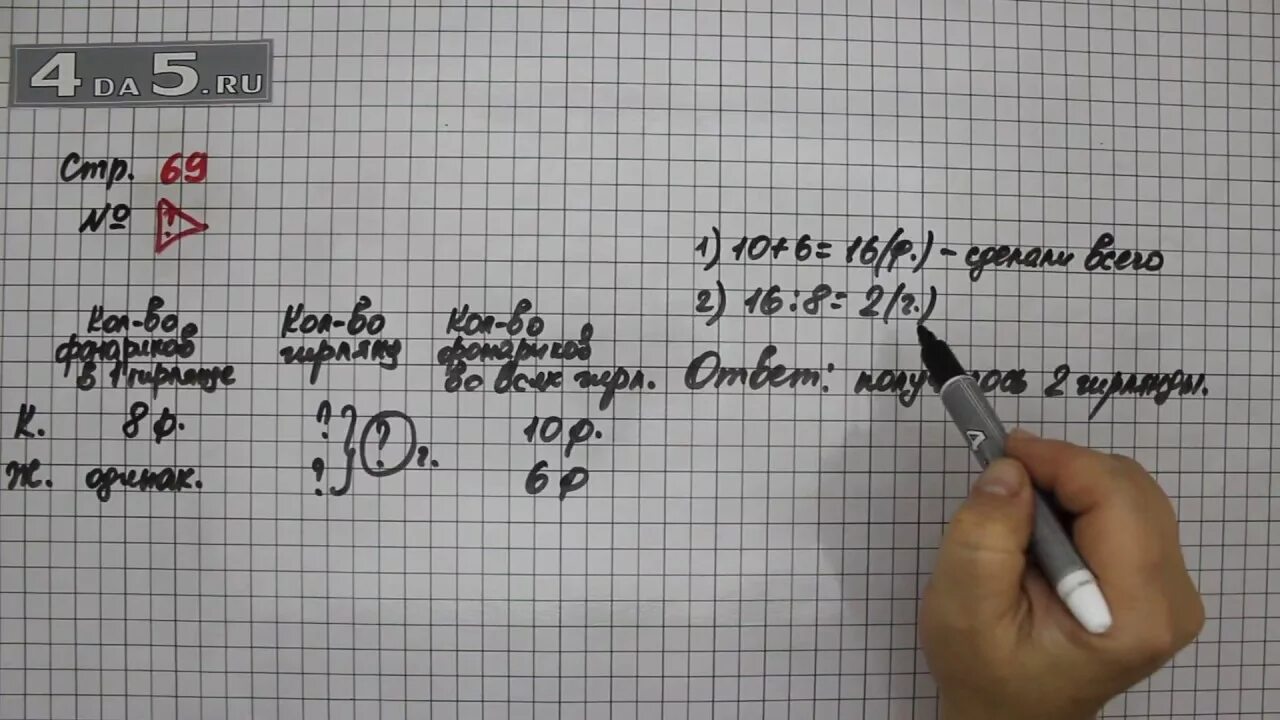 4DA5.RU
Стр. 69
№ ?
Кол-во фонариков в 1 гирлянде
Кол-во гирлянд
Кол-во фонариков во всех гирл.
К. 8 ф. ? 10 ф.
? г.
Ж. одинак. ? 6 ф
1) 10+6= 16(ф.) - сделали всего
2) 16:8= 2(г.)
Ответ: 2 гирлянды.